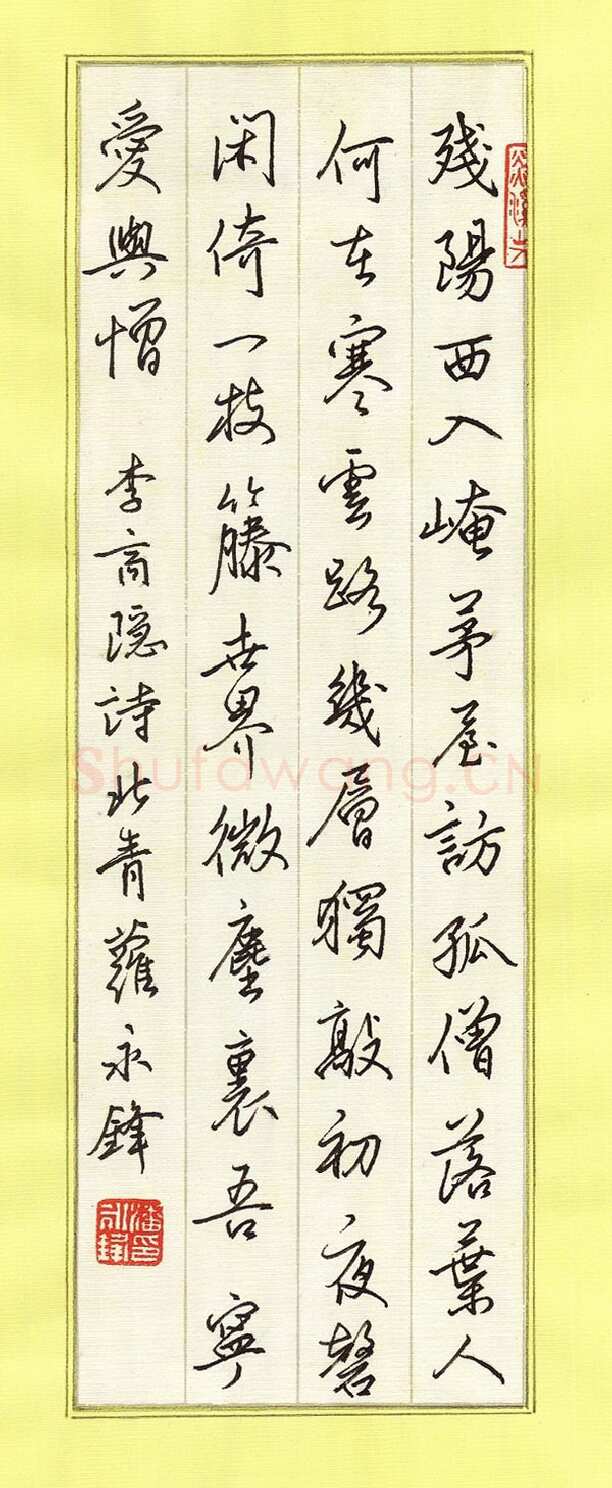 殘陽西入崦茅屋訪孤僧落葉人
何在寒雲路幾層獨敲初夜磬
閑倚一枝籐世界微塵裏吾寧
愛與憎 李商隱詩北青蘿永鋒
潘永鋒印
Shufawang.CN